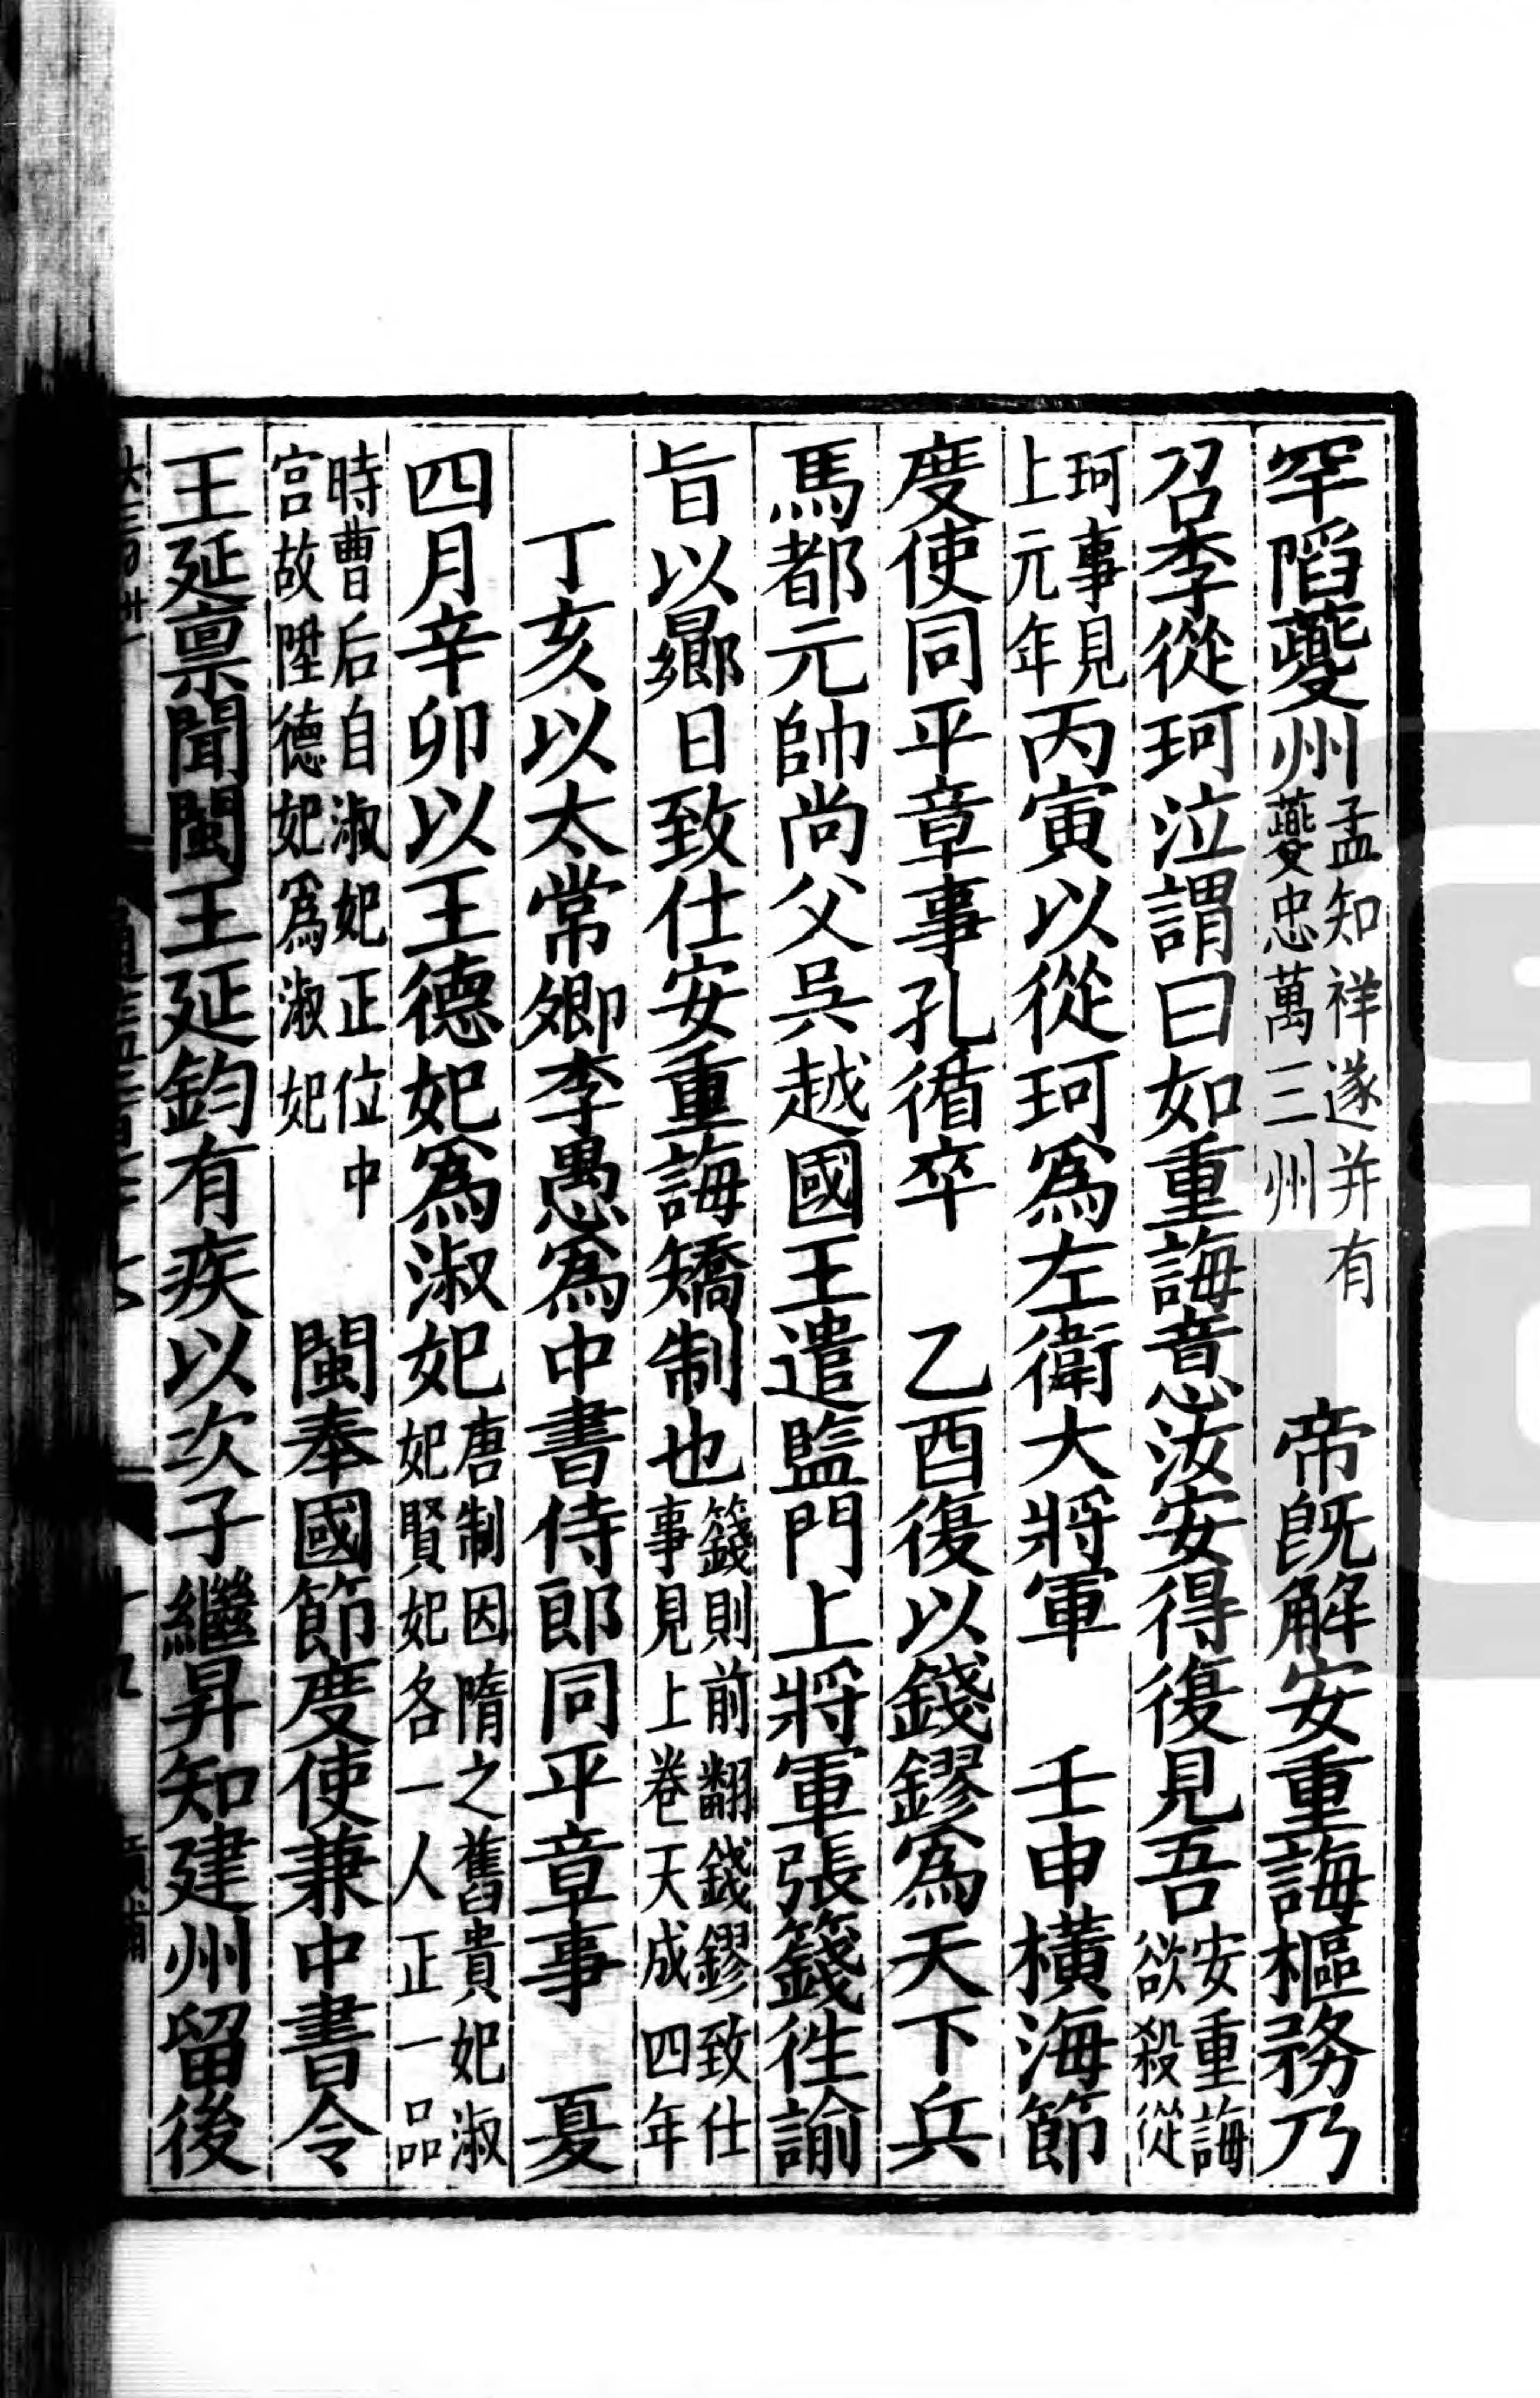 罕陷夔州孟知祥遂并有夔忠萬三州　帝既解安重誨樞務乃
召李從珂泣謂曰如重誨意汝安得復見吾安重誨欲殺從
珂事見上元年丙寅以從珂爲左衛大將軍　壬申橫海節
度使同平章事孔循卒　乙酉復以錢鏐爲天下兵
馬都元帥尚父吳越國王遣監門上將軍張籛徃諭
旨以曏日致仕安重誨矯制也籛則前翻錢鏐致仕事見上卷天成四年
丁亥以太常卿李愚爲中書侍郎同平章事　夏
四月辛卯以王德妃爲淑妃唐制因隋之舊貴妃淑妃賢妃各一人正一品
時曹后自淑妃正位中宮故陞德妃爲淑妃　閩奉國節度使兼中書令
王延禀聞閩王延鈞有疾以次子繼昇知建州留後